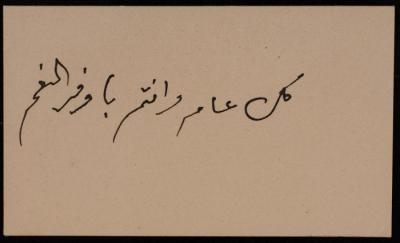 كل عام وانتم باوفر النعم